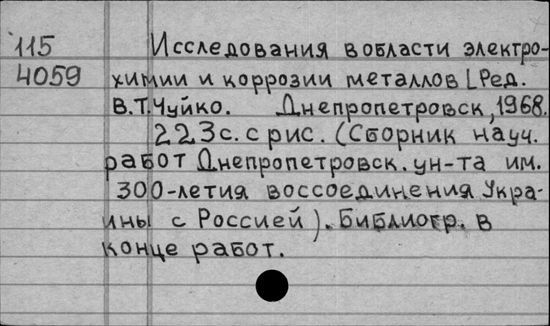 115 Исследования в области электро-
4059 химии и коррозии металлов [Ред.
В.Т.Чуйко. Днепропетровск, 1968.
223с. с рис. (Сборник науч.
работ Днепропетровск. ун-та им.
300-летия воссоединения Укра-
ины с Россией). Библиогр. в
конце работ.